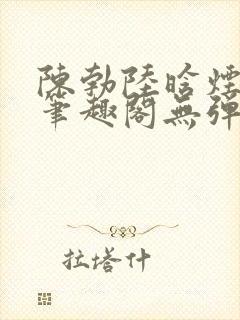 陳勃陸晗煙
筆趣閣無彈
拉塔什